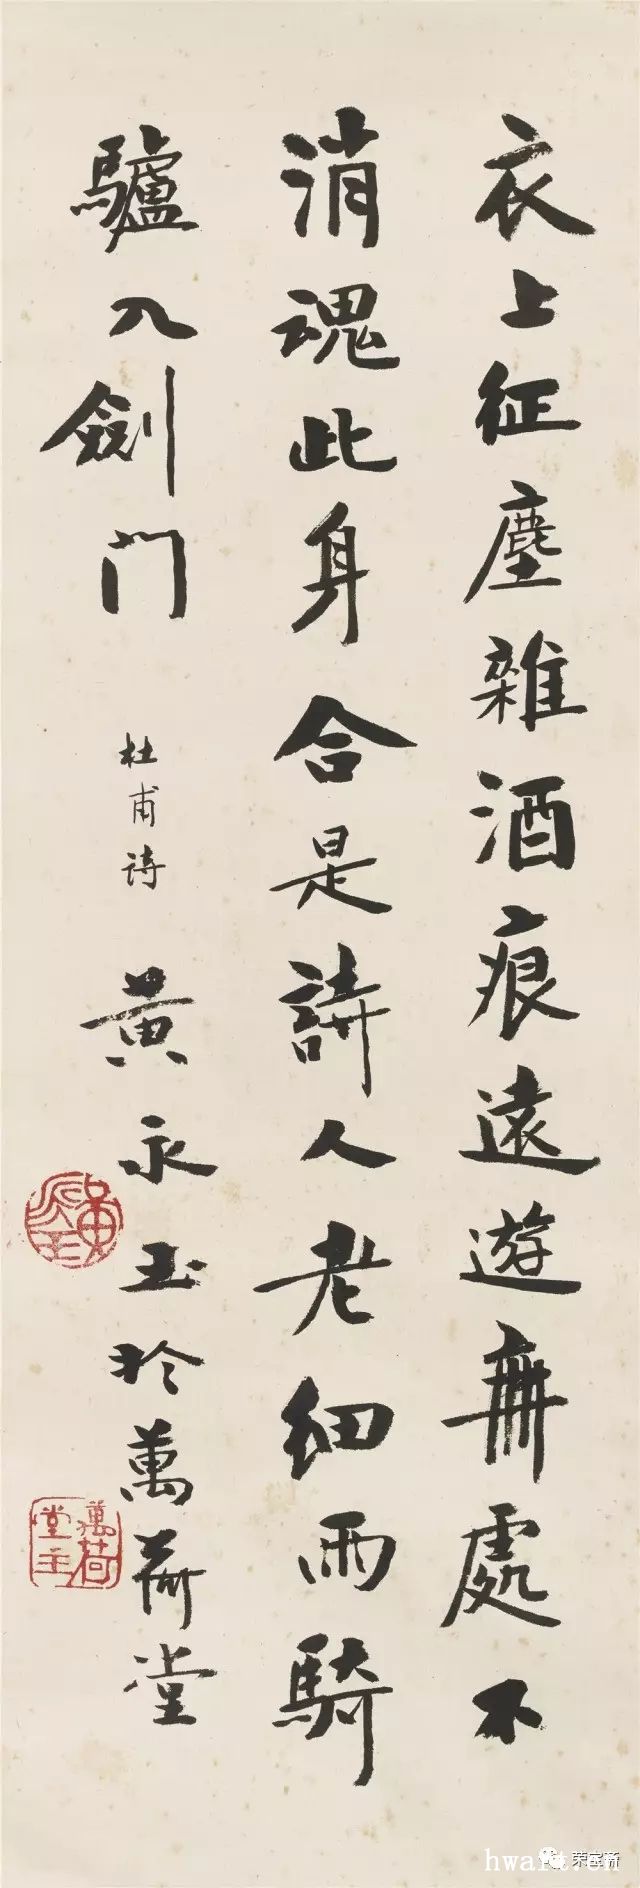 衣上征塵雜酒痕遠遊無處不
消魂此身合是詩人老細雨騎
驢入劍门 杜甫诗 黄永玉於萬荷堂
黄永玉
萬荷堂主
荣宝斋